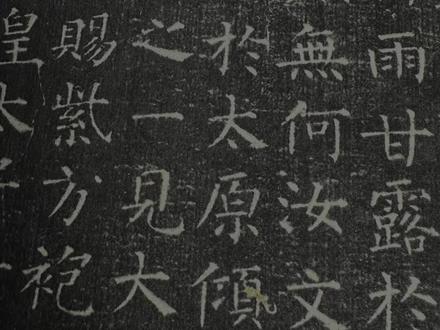 雨甘露於
無何汝文
於太原傾
之一見大
賜紫方袍
皇太子